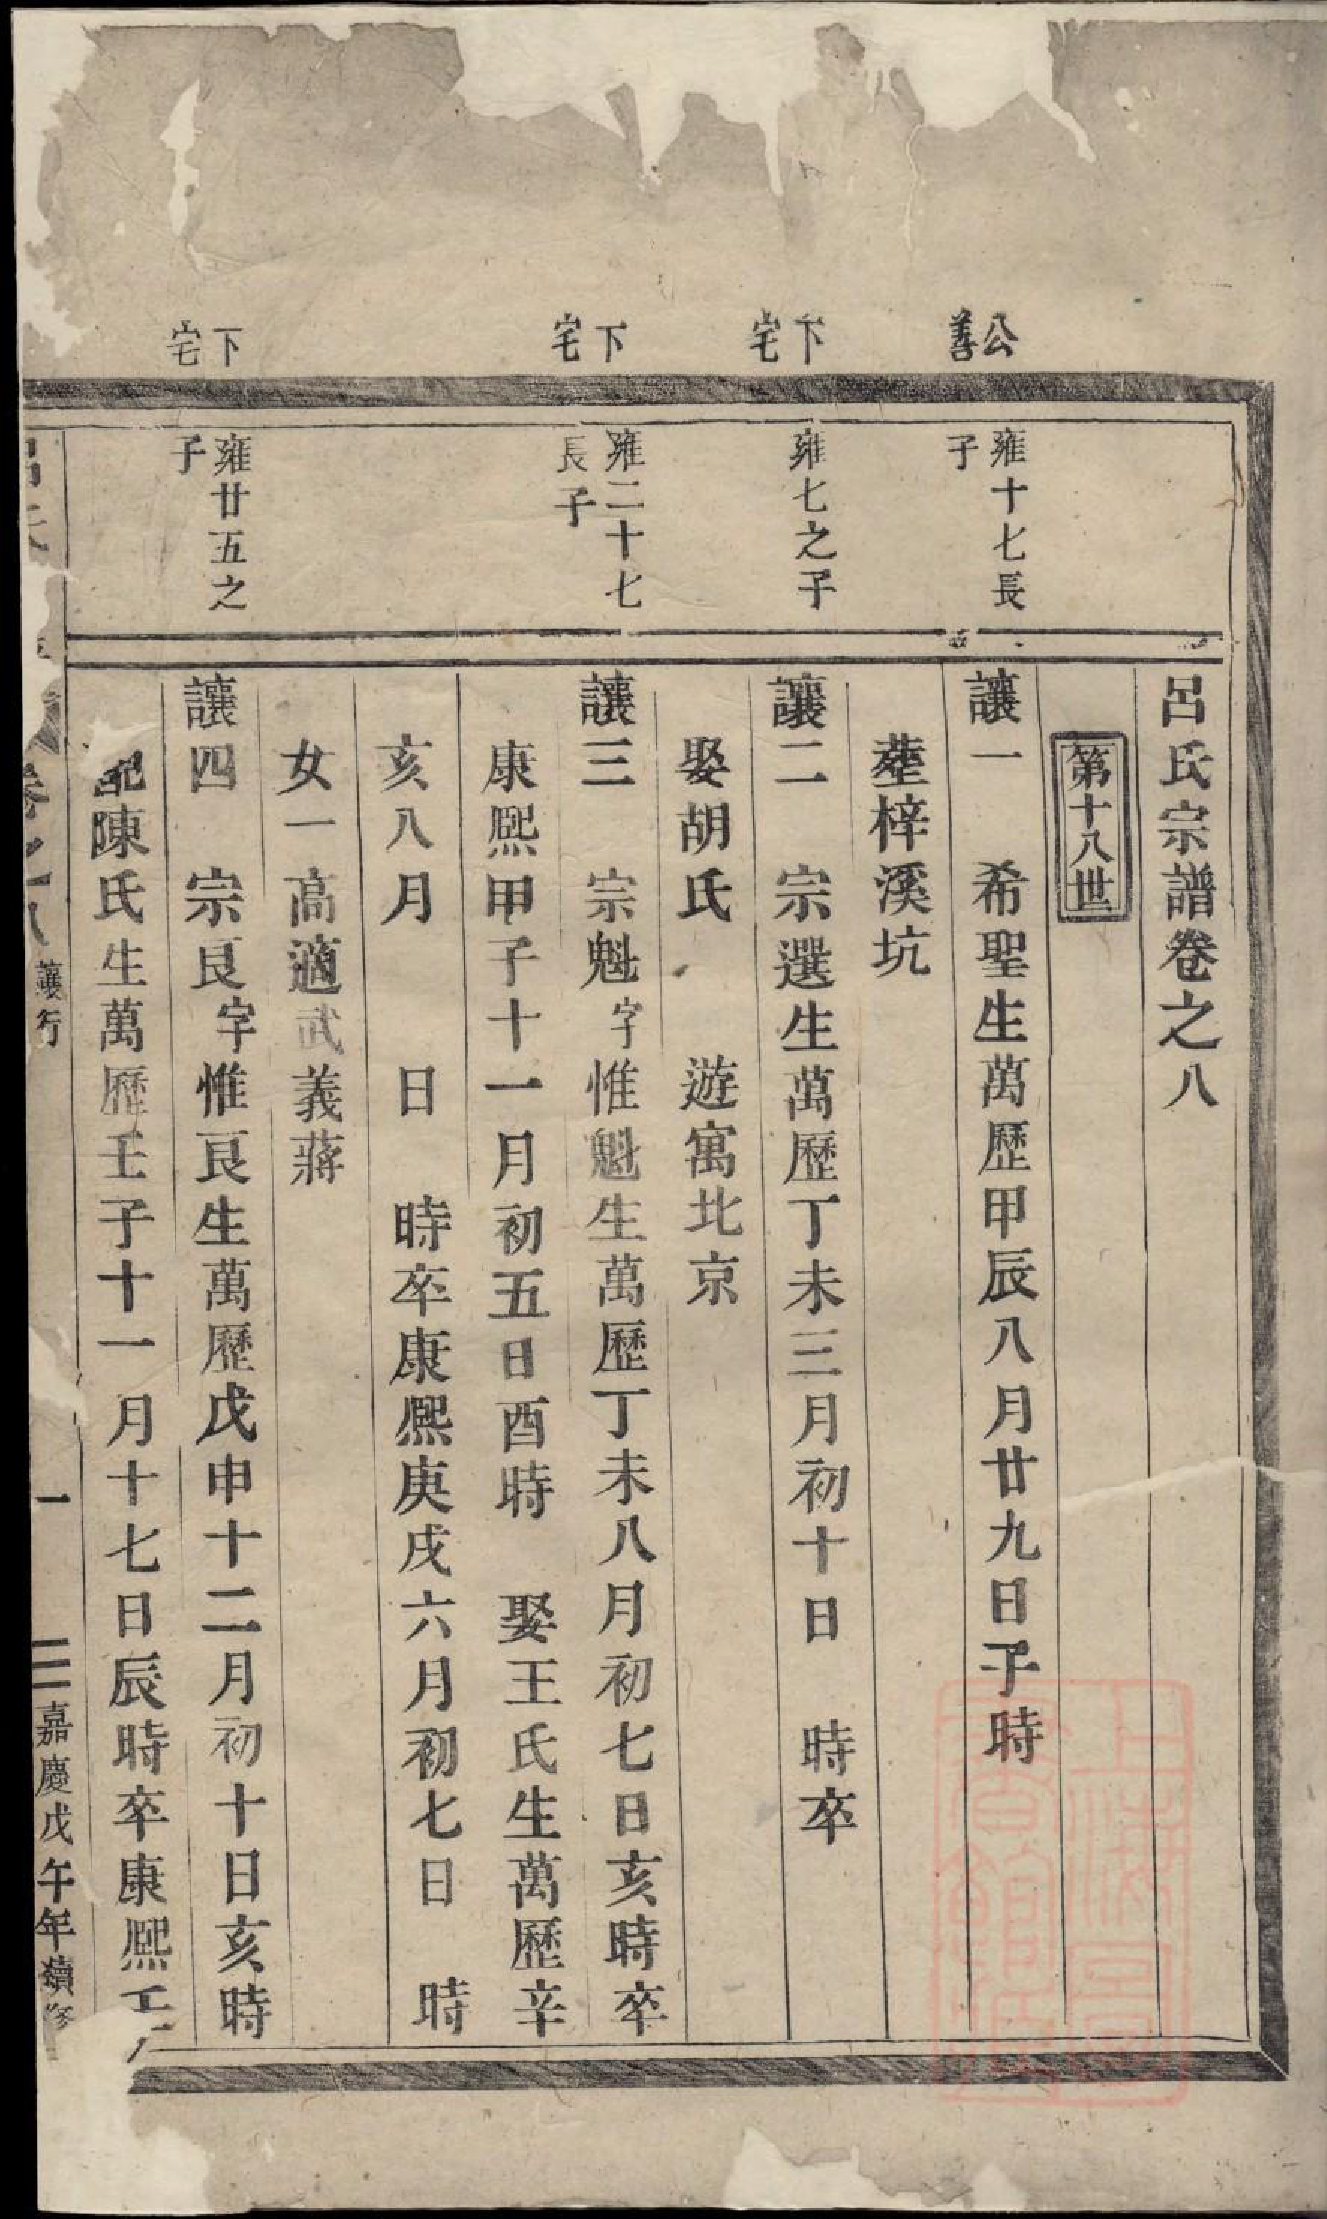 呂氏宗譜卷之八
第十八世
公善
雍十七長子
讓一　希聖生萬歷甲辰八月廿九日子時
葬梓溪坑
下宅
雍七之子
讓二　宗選生萬歷丁未三月初十日　時卒
娶胡氏　遊寓北京
下宅
雍二十七長子
讓三　宗魁字惟魁生萬歷丁未八月初七日亥時卒
康熙甲子十一月初五日酉時　娶王氏生萬歷辛
亥八月　日　時卒康熙庚戌六月初七日　時
女一高適武義蔣
下宅
雍廿五之子
讓四　宗良字惟良生萬歷戊申十二月初十日亥時
配陳氏生萬歷壬子十一月十七日辰時卒康熙
呂氏　卷之八　讓行　一　嘉慶戊午年續修
上海圖書館藏